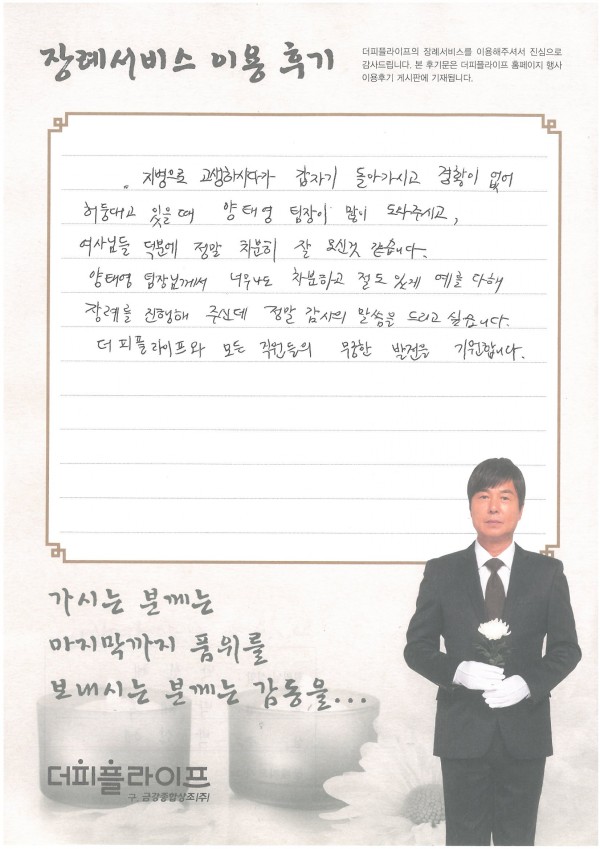 장례서비스 이용 후기
더피플라이프의 장례서비스를 이용해주셔서 진심으로
감사드립니다. 본 후기문은 더피플라이프 홈페이지 행사
이용후기 게시판에 기재됩니다.
지병으로 고생하시다가 갑자기 돌아가시고 경황이 없어
허둥대고 있을때 양태영 팀장이 많이 도와주시고,
여사님들 덕분에 정말 차분히 잘 모신것 같습니다.
양태영 팀장님께서 너무나도 차분하고 절도 있게 예를 다해
장례를 진행해 주신데 정말 감사의 말씀을 드리고 싶습니다.
더피플라이프와 모든 직원들의 무궁한 발전을 기원합니다.
가시는 분께는
마지막까지 품위를
보내시는 분께는 감동을...
더피플라이프
구. 금강종합상조(주)